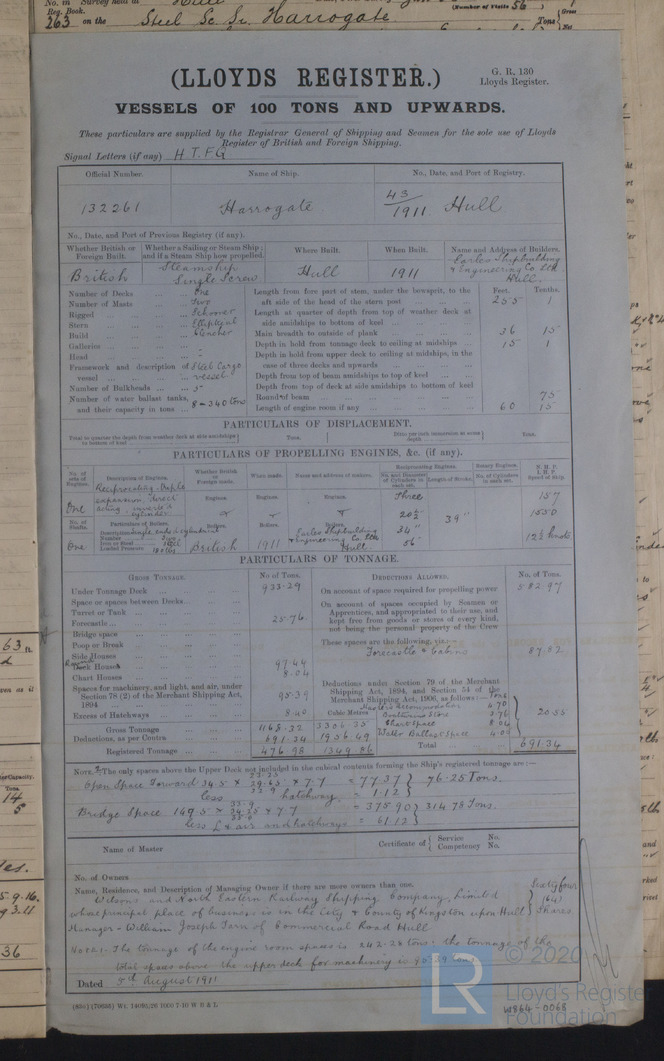 263 on the Steel Sc Sr. Harrogate
(LLOYDS REGISTER.)
G. R. 130
Lloyds Register.
VESSELS OF 100 TONS AND UPWARDS.
These particulars are supplied by the Registrar General of Shipping and Seamen for the sole use of Lloyds
Register of British and Foreign Shipping.
Signal Letters (if any) H T. F G
Official Number. Name of Ship. No., Date, and Port of Registry.
132261 Harrogate 43/1911 Hull
No., Date, and Port of Previous Registry (if any).
Whether British or Foreign Built. Whether a Sailing or Steam Ship; and if a Steam Ship how propelled. Where Built. When Built. Name and Address of Builders.
British Steamship Single Screw Hull 1911 Earles Shipbuilding & Engineering Co. Ltd. Hull.
Number of Decks One
Number of Masts Two
Rigged Schooner
Stern Elliptical
Build Clencher
Galleries -
Head -
Framework and description of vessel Steel Cargo vessel
Number of Bulkheads 5
Number of water ballast tanks, and their capacity in tons 8 - 340 tons
Feet. Tenths.
Length from fore part of stem, under the bowsprit, to the aft side of the head of the stern post 255 1
Length at quarter of depth from top of weather deck at side amidships to bottom of keel
Main breadth to outside of plank 36 15
Depth in hold from tonnage deck to ceiling at midships 15 1
Depth in hold from upper deck to ceiling at midships, in the case of three decks and upwards
Depth from top of beam amidships to top of keel
Depth from top of deck at side amidships to bottom of keel
Round of beam 75
Length of engine room if any 60 15
PARTICULARS OF DISPLACEMENT.
Total to quarter the depth from weather deck at side amidships to bottom of keel Tons. Ditto per inch immersion at same depth Tons.
PARTICULARS OF PROPELLING ENGINES, &c. (if any).
No. of sets of Engines. Description of Engines. Whether British or Foreign made. When made. Name and address of makers. Reciprocating Engines. Rotary Engines. N.H.P. I.H.P. Speed of Ship.
No. and Diameter of Cylinders in each set. Length of Stroke. No. of Cylinders in each set.
One Reciprocating. Triple expansion, direct acting, inverted cylinder
Engines. Engines. Engines. Three 157
20½ 39" 1550
34"
56" 12½ knots
No. of Shafts. Particulars of Boilers. Boilers. Boilers. Boilers.
One British 1911 Earles Shipbuilding & Engineering Co. Ltd. Hull
PARTICULARS OF TONNAGE.
GROSS TONNAGE. No of Tons. DEDUCTIONS ALLOWED. No. of Tons.
Under Tonnage Deck 933.29
Space or spaces between Decks
Turret or Tank
Forecastle 25.76
Bridge space
Poop or Break
Side Houses
Deck Houses 97.44
Chart Houses 8.04
Spaces for machinery, and light, and air, under Section 78 (2) of the Merchant Shipping Act, 1894 95.39
Excess of Hatchways 8.40
Cubic Metres
Gross Tonnage 1168.32 3306.35
Deductions, as per Contra 691.34 1956.49
Registered Tonnage 476.98 1349.86
On account of space required for propelling power 582.97
On account of spaces occupied by Seamen or Apprentices, and appropriated to their use, and kept free from goods or stores of every kind, not being the personal property of the Crew
These spaces are the following, viz.:
Forecastle & Cabins 87.82
Deductions under Section 79 of the Merchant Shipping Act, 1894, and Section 54 of the Merchant Shipping Act, 1906, as follows: Tons
Master's Accommodation 4.70
Boatswains Store 3.76
Chart space 8.04
Water Ballast Space 4.05
20.55
Total 691.34
NOTE. The only spaces above the Upper Deck not included in the cubical contents forming the Ship's registered tonnage are:—
Open Space Forward 34.5 × 29.65 × 7.7 = 77.37 } 76.25 Tons.
less hatchway = 1.12
Bridge Space 149.5 × × 7.7 = 375.90 } 314.78 Tons.
less L & air and hatchways = 61.12
Name of Master Certificate of { Service No. Competency No.
No. of Owners
Name, Residence, and Description of Managing Owner if there are more owners than one.
Wilsons and North Eastern Railway Shipping Company, Limited
whose principal place of business is in the City & County of Kingston upon Hull
Sixty four (64) Shares
Manager - William Joseph Tarn of Commercial Road Hull
Note 1. The tonnage of the engine room spaces is 242.26 tons: the tonnage of the
total spaces above the upper deck for machinery is 95.39 tons
Dated 3rd August 1911
© 2020
Lloyd's Register
Foundation
LR
W864-0068